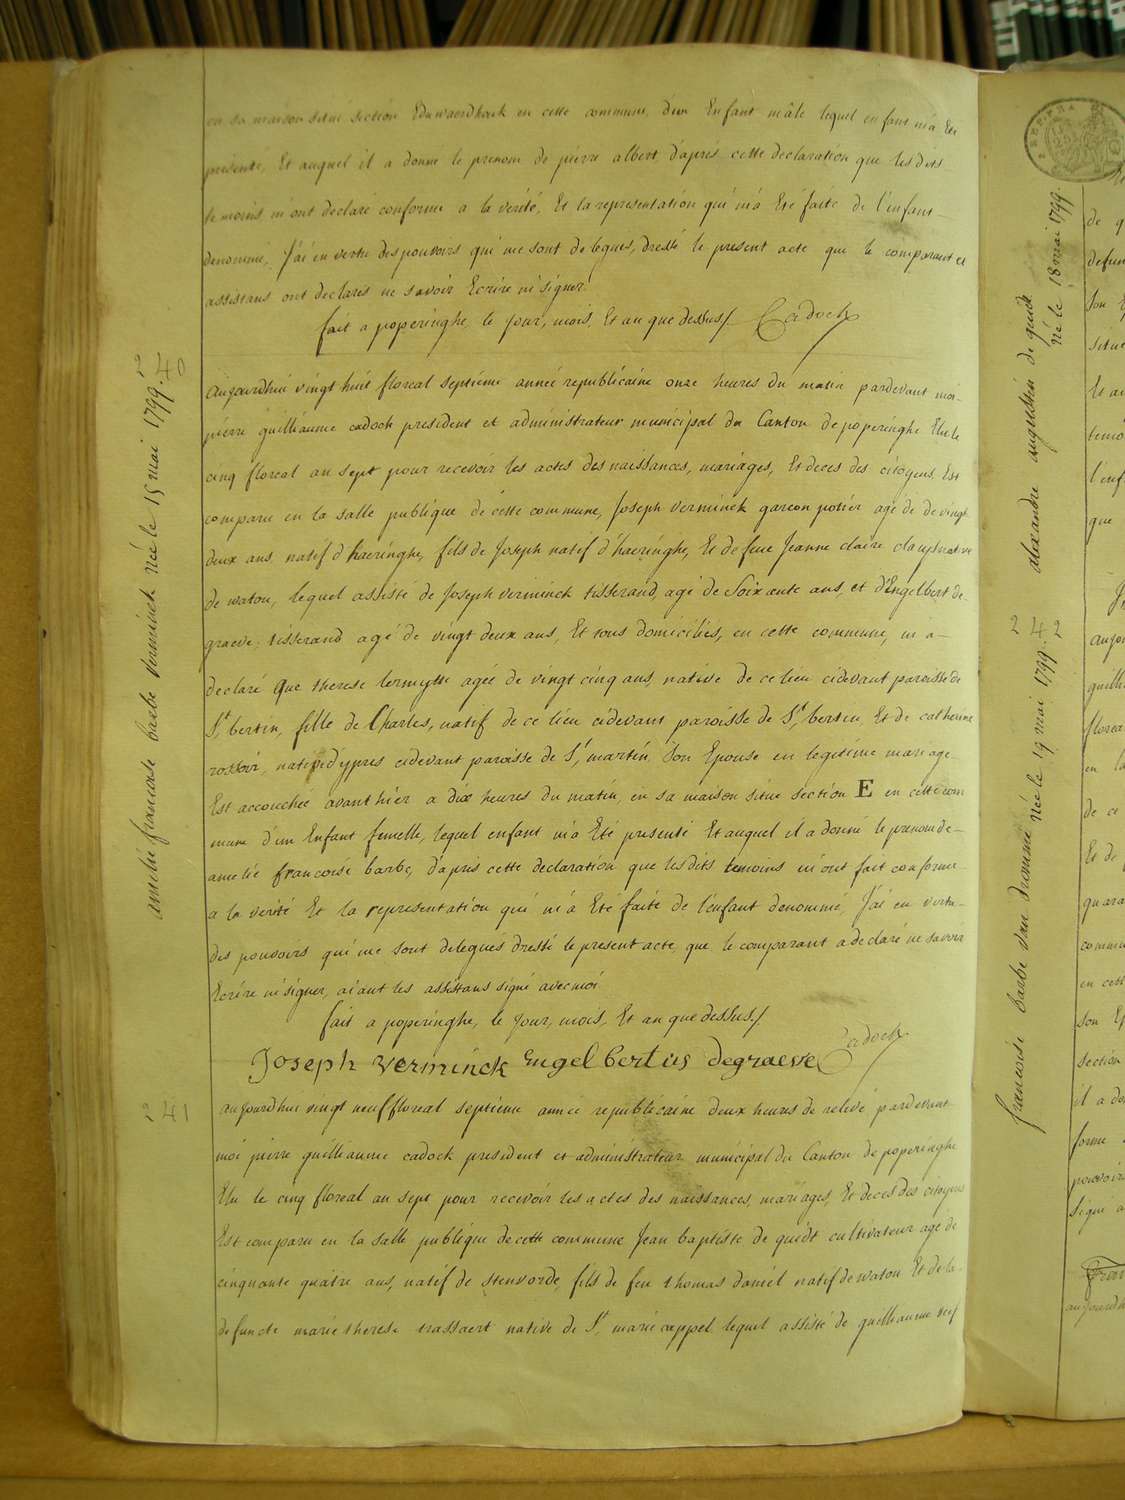 en sa maison situé section Eduwaerdhoek en cette commune, d'un Enfant mâle lequel enfant m'a Eté
presenté, Et auquel il a donné le prenom de pierre albert d'après cette declaration que les dits
temoins m'ont declaré conforme a la verité, Et la representation qui m'á Eté faite de l'enfant
denommé, J'ai en vertu des pouvoirs qui me sont delegués, dressé le present acte que le comparant et
assistans ont declarés ne savoir Ecrire ni signer
fait a poperinghe le jour, mois, Et an que dessus/. Cadock
240
Aujourdhui vingt huit floreal septieme année republicaine onze heures du matin pardevant moi
pierre guilliaume cadock president et administrateur municipal du Canton de poperinghe Elu le
cinq floreal an sept pour recevoir les actes des naissances, mariages, Et deces des citoyens Est
comparu en la salle publique de cette commune, Joseph verminck garcon potier agé de vingt
deux ans, natif d'haeringhe, fils de Joseph natif d'haeringhe, Et de feue Jeanne claire native
de watou, lequel assisté de Joseph verminck tisserand, agé de soixante ans, et d'Engelbert de
graeve, tisserand agé de vingt deux ans, Et tous domiciliés, en cette commune, m'a
declaré que therese lermytte agée de vingt cinq ans, native de ce lieu cidevant paroisse de
St. bertin, fille de Charles, natif de ce lieu cidevant paroisse de St. bertin, Et de catherine
native d'ypres cidevant paroisse de St. martin, son Epouse en legitime mariage
Est accouchée avant hier a dix heures du matin, en sa maison situé section E en cette com
mune d'un Enfant femelle, lequel enfant m'a Eté presenté Et auquel il a donné le prenom de
amelié francoise barbe, d'apris cette declaration que les dits temoins m'ont fait conforme
a la verité Et la representation qui m'á Eté faite de l'enfant denommé, J'ai en vertu
des pouvoirs qui me sont delegués dressé le present acte, que le comparant a declaré ne savoir
Ecrire ni signer, aiant les assistans signé avec moi
fait a poperinghe, le jour, mois, Et an que dessus/.
Joseph verminck Engelbertus degraeve Cadock
241
aujourdhui vingt neuf floreal septieme année republicaine deux heures de relevé pardevant
moi pierre guilliaume cadock president et administrateur municipal du Canton de poperinghe
Elu le cinq floreal an sept pour recevoir les actes des naissances, mariages, Et deces des citoyens
Est comparu en la salle publique de cette commune Jean baptiste de quidt cultivateur agé de
cinquante quatre ans, natif de stenvorde, fils de feu thomas daniel natif de watou Et de la
defuncte marie therese trassaert native de St. marie cappel, lequel assisté de guilliaume
amelié francoise barbe verminck née le 15 mai 1799.
alexandre augustin de quidt
né le 18 mai 1799.
242
francoise barbe van dromme née le 19 mai 1799.